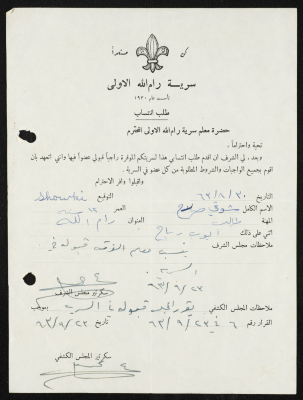 كن مستعداً
سرية رام الله الاولى
تأسست عام ١٩٢٠
طلب انتساب
حضرة معلم سرية رام الله الاولى المحترم
تحية واحتراماً،
وبعد، لي الشرف ان اقدم طلب انتسابي هذا لسريتكم الموقرة راجياً قبولي عضواً فيها وانني اتعهد بان
اقوم بجميع الواجبات والشروط المطلوبة من كل عضو في السرية.
واقبلوا وافر الاحترام
التاريخ ٦٢/٨/٣٠ التوقيع Showki
الاسم الكامل شوقي العمر ١٣ سنة
المهنة طالب العنوان رام الله
اثنى على ذلك ايوب رباح
ملاحظات مجلس الشرف قبوله في
السرية
٦٣/٩/٢٣
سكرتير مجلس الشرف
ملاحظات المجلس الكشفي يقرر المجلس قبوله في السرية بموجب
القرار رقم ٦ في ٦٣/٩/٢٣ تاريخ ٦٣/٩/٢٣
سكرتير المجلس الكشفي